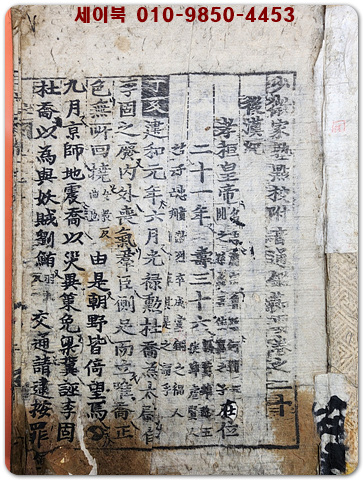 세이북 010-9850-4453
少微家塾點校附音通鑑節要卷之二十
後漢紀
孝桓皇帝 在位
二十一年壽三十六
丁亥 建和元年六月光祿勳杜喬爲太尉自
李固之廢內外喪氣群臣側足而立唯喬正
色無所回撓 由是朝野皆倚望焉
九月京師地震喬以災異策免梁冀誣李固
杜喬以為與妖賊劉鮪 交通請逮按罪